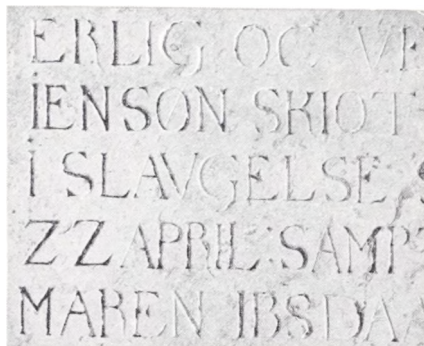 ERLIG OC VE
IENSØN SKIØT
I SLAVGELSE S
ZZ APRIL SAMPT
MAREN IBSDAA